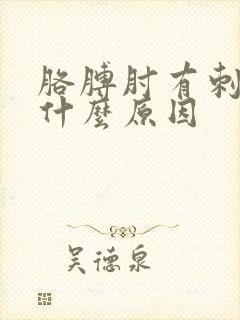 胳膊肘有刺
什麼原因
吴德泉